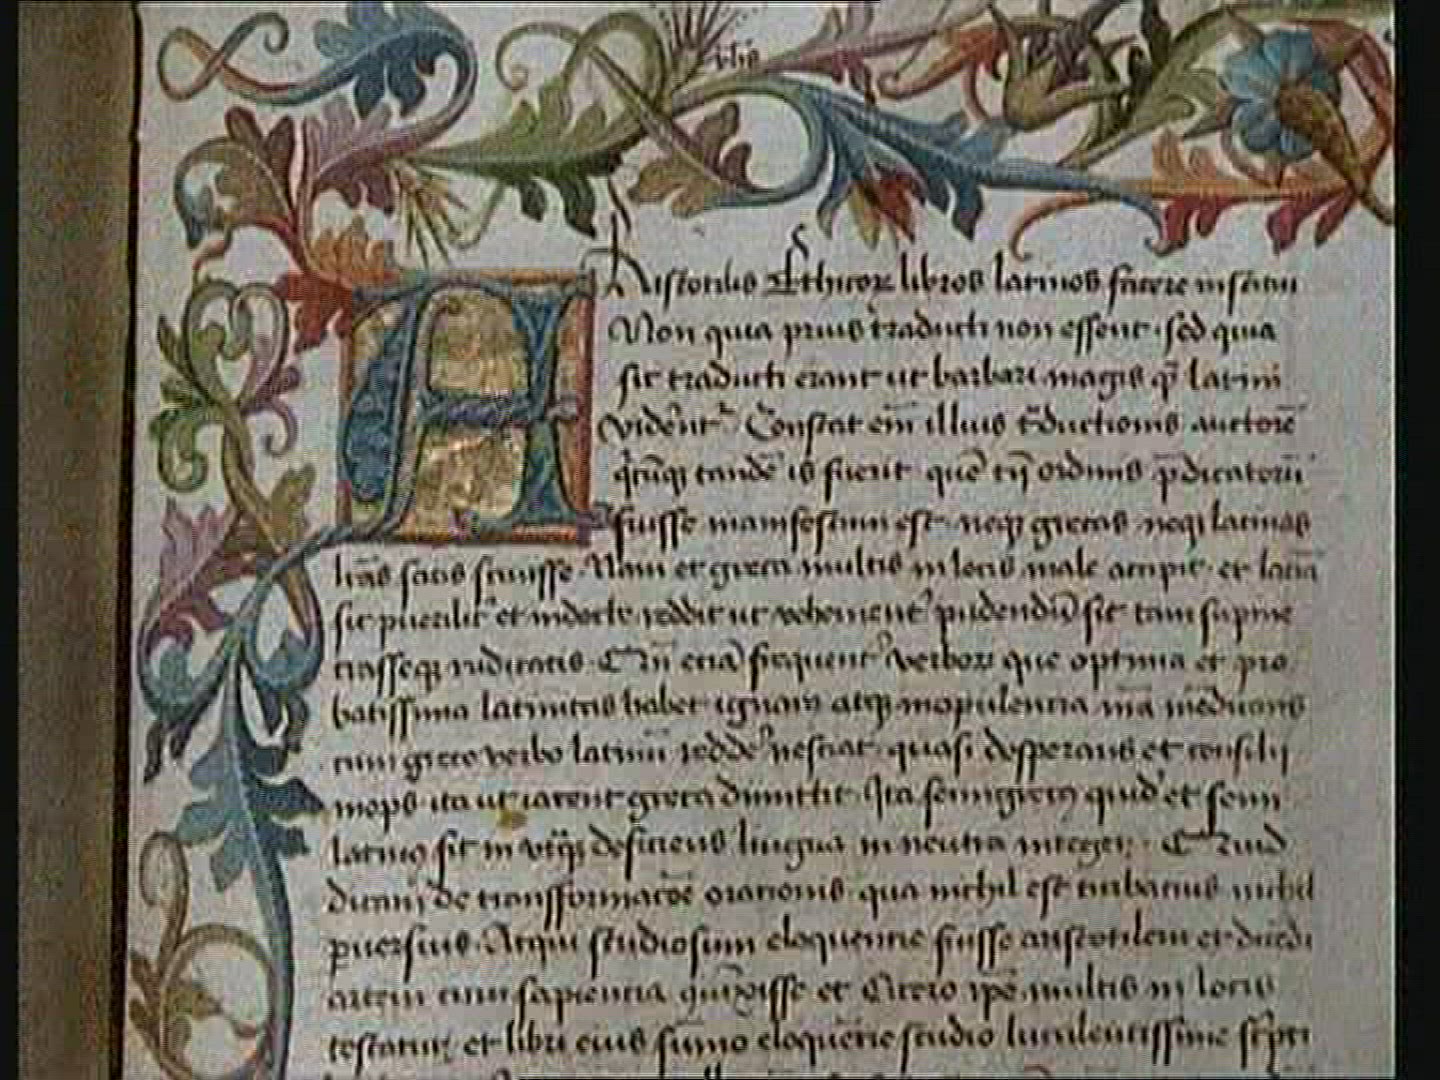 Aristotilis Ethicor libros latinos facere institui
Non quia prius traducti non essent · sed quia
sic traducti erant ut barbari magis q̄ latini
vident᷑ Constat em̄ illius t̄ductionis auctorē
tandē is fuerit quē ordinis p̄dicatorū
fuisse manifestum est · neqꝫ grecas neqꝫ latinas
lr̄as satis scivisse · Nam et greca multis in locis male accipit · et latīa
sic pueriliť et indocte reddit ut vehemenť pudendū sit tam supine
crasseqꝫ ruditatis · etiā frequenť verborꝫ que optima et pro
batissima latinitas habet · ignarꝰ atqꝫ in opulentia mēdicans
cum greco verbo latinū reddē nesciat · quasi desperans et consilij
inops · ita ut iacent greca dimittit · Ita semigrecꝰ quidē et semi
latinꝰ fit in utrqꝫ deficiens lingua in neutra integer · Quid
dicam de transformacōe orationis · qua nichil est turbacius nichil
pversius · Atqui studiosum eloquentie fuisse aristotilem et dicēdi
artem cum sapientia et Cicero ip̄e multis in locis
testatur · et libri eius sūmo eloquētie studio luculentissime sc̄pti